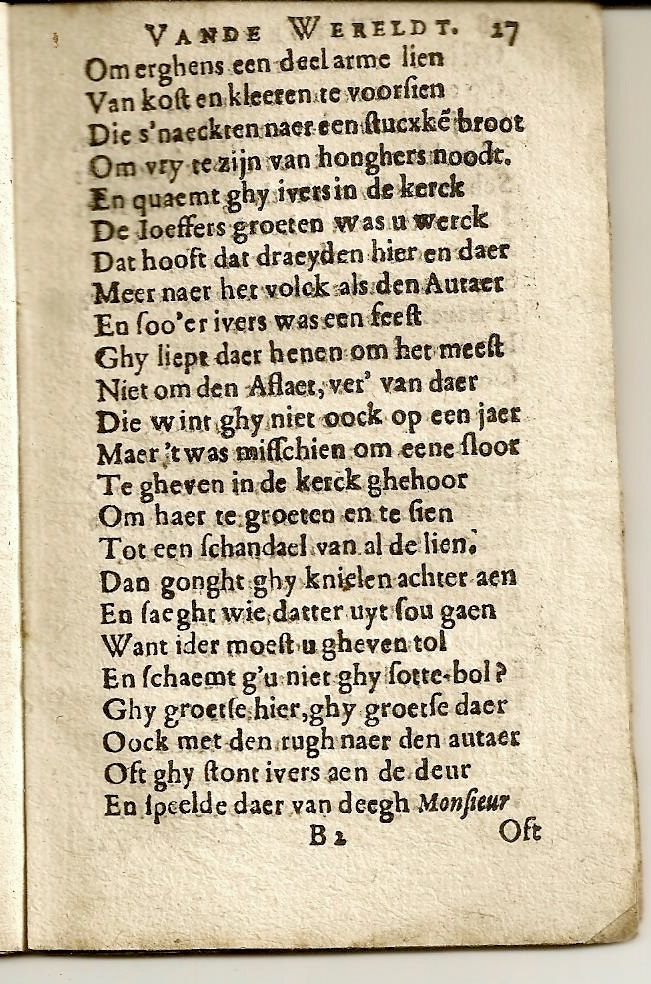 VANDE WERELDT. 27
Om erghens een deel arme lien
Van koſt en kleeren te voorſien
Die s'naeckten naer een ſtucxkē broot
Om vry te zijn van honghers noodt.
En quaemt ghy ivers in de kerck
De Joeffers groeten was u werck
Dat hooft dat draeyden hier en daer
Meer naer het volck als den Autaer
En ſoo'er ivers was een feeſt
Ghy liept daer henen om het meeſt
Niet om den Aflaet, ver' van daer
Die wint ghy niet oock op een jaer
Maer 't was miſſchien om eene ſloor
Te gheven in de kerck ghehoor
Om haer te groeten en te ſien
Tot een ſchandael van al de lien.
Dan gonght ghy knielen achter aen
En ſaeght wie datter uyt ſou gaen
Want ider moeſt u gheven tol
En ſchaemt g'u niet ghy ſotte-bol?
Ghy groetſe hier, ghy groetſe daer
Oock met den rugh naer den autaer
Oft ghy ſtont ivers aen de deur
En ſpeelde daer van deegh Monſieur
B 2 Oft